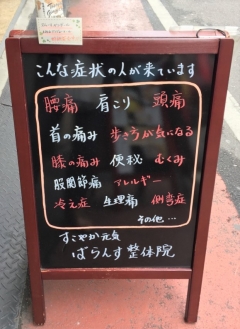 こんな症状の人が来ています
腰痛 肩こり 頭痛
首の痛み 歩き方が気になる
膝の痛み 便秘 むくみ
股関節痛 アレルギー
冷え症 生理痛 側弯症
その他…
すこやか元気
ばらんす整体院